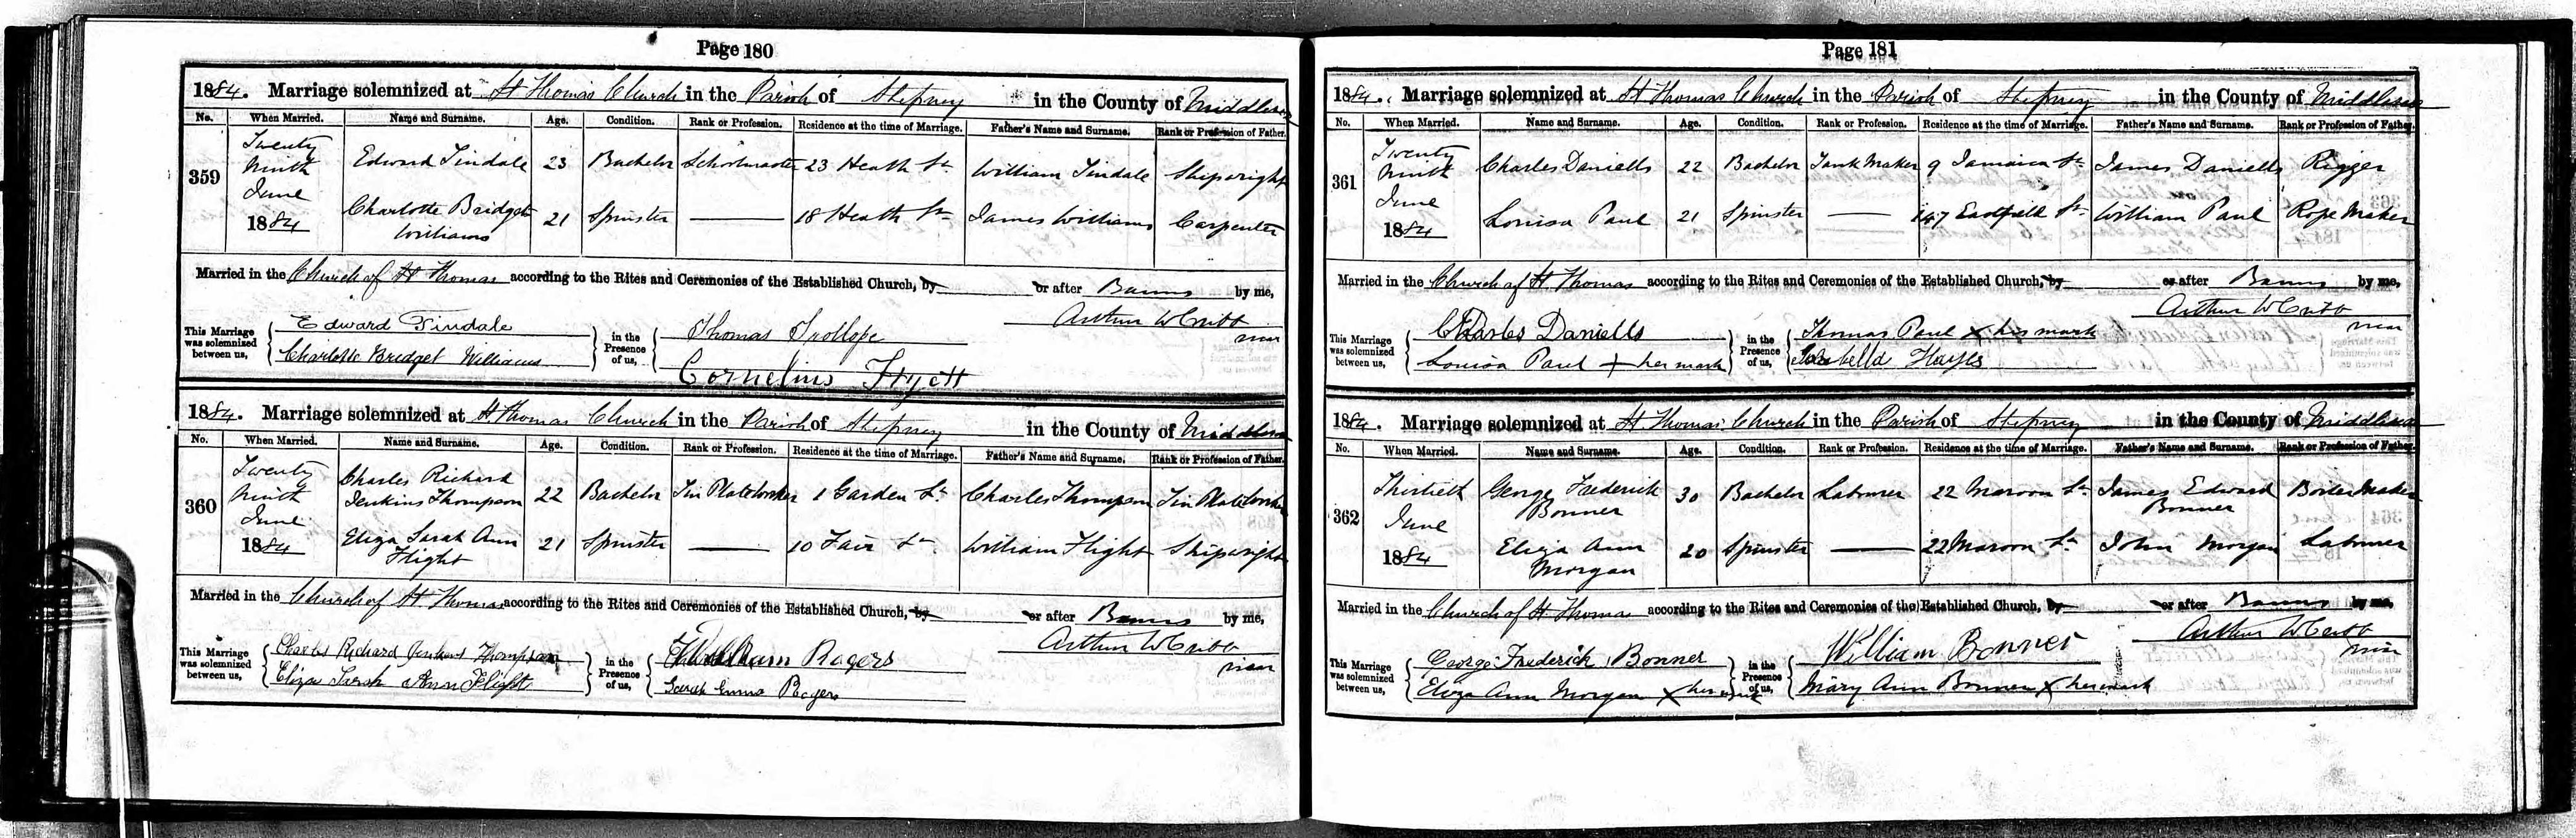 Page 180
1884. Marriage solemnized at St Thomas Church in the Parish of Stepney in the County of Middlesex
No. When Married. Name and Surname. Age. Condition. Rank or Profession. Residence at the time of Marriage. Father's Name and Surname. Rank or Profession of Father.
359 Twenty Ninth June 1884 Edward Tindale 23 Bachelor Schoolmaster 23 Heath St. William Tindale Shipwright
Charlotte Bridget Williams 21 Spinster 18 Heath St. James Williams Carpenter
Married in the Church of St Thomas according to the Rites and Ceremonies of the Established Church, by or after Banns by me,
Arthur W Cribb
This Marriage was solemnized between us, Edward Tindale in the Presence of us, Thomas Trollope
Charlotte Bridget Williams Cornelius
1884. Marriage solemnized at St Thomas Church in the Parish of Stepney in the County of Middlesex
No. When Married. Name and Surname. Age. Condition. Rank or Profession. Residence at the time of Marriage. Father's Name and Surname. Rank or Profession of Father.
360 Twenty Ninth June 1884 Charles Richard Jenkins Thompson 22 Bachelor Tin Plateworker 1 Garden St. Charles Thompson Tin Plateworker
Eliza Sarah Ann Flight 21 Spinster 10 Fair St. William Flight Shipwright
Married in the Church of St Thomas according to the Rites and Ceremonies of the Established Church, by or after Banns by me,
Arthur W Cribb
This Marriage was solemnized between us, Charles Richard Jenkins Thompson in the Presence of us, William Rogers
Eliza Sarah Ann Flight Sarah Emma Rogers
Page 181
1884. Marriage solemnized at St Thomas Church in the Parish of Stepney in the County of Middlesex
No. When Married. Name and Surname. Age. Condition. Rank or Profession. Residence at the time of Marriage. Father's Name and Surname. Rank or Profession of Father.
361 Twenty Ninth June 1884 Charles Daniells 22 Bachelor Tank Maker 9 Jamaica St. James Daniells Rigger
Louisa Paul 21 Spinster 147 Eastfield St. William Paul Rope Maker
Married in the Church of St Thomas according to the Rites and Ceremonies of the Established Church, by or after Banns by me,
Arthur W Cribb
This Marriage was solemnized between us, Charles Daniells in the Presence of us, Thomas Paul X his mark
Louisa Paul + her mark Isabella Hayes
1884. Marriage solemnized at St Thomas Church in the Parish of Stepney in the County of Middlesex
No. When Married. Name and Surname. Age. Condition. Rank or Profession. Residence at the time of Marriage. Father's Name and Surname. Rank or Profession of Father.
362 Thirtieth June 1884 George Frederick Bonner 30 Bachelor Labourer 22 Maroon St. James Edward Bonner Boiler Maker
Eliza Ann Morgan 20 Spinster 22 Maroon St. John Morgan Labourer
Married in the Church of St Thomas according to the Rites and Ceremonies of the Established Church, by or after Banns by me,
Arthur W Cribb
This Marriage was solemnized between us, George Frederick Bonner in the Presence of us, William Bonner
Eliza Ann Morgan X her mark Mary Ann Bonner X her mark